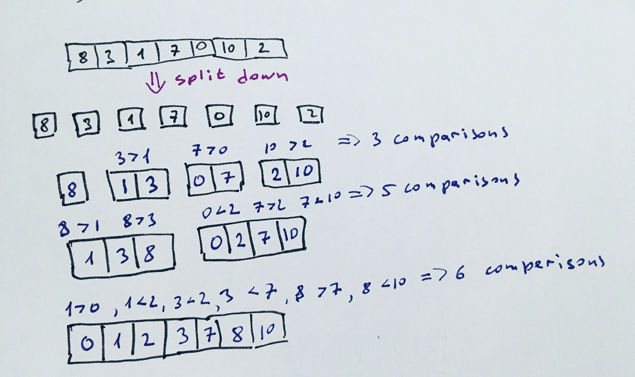 8 3 1 7 0 10 2
⇓ split down
8 3 1 7 0 10 2
3>1 7>0 10>2 => 3 comparisons
8 1 3 0 7 2 10
8>1 8>3 0<2 7>2 7<10 => 5 comparisons
1 3 8 0 2 7 10
1>0, 1<2, 3<2, 3<7, 8>7, 8<10 => 6 comparisons
0 1 2 3 7 8 10